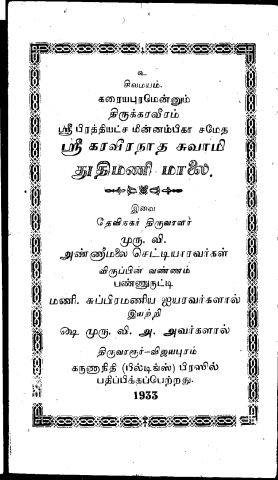 உ
சிவமயம்.
கரையபுரமென்னும்
திருக்கரவீரம்
ஸ்ரீ பிரத்தியட்ச மின்னம்பிகா சமேத
ஸ்ரீ கரவீரநாத சுவாமி
துதிமணி மாலை.
இவை
தேவிககர் திருவாளர்
முரு. வி.
அண்ணாமலை செட்டியாரவர்கள்
விருப்பின் வண்ணம்
பண்ணுருட்டி
மணி. சுப்பிரமணிய ஐயரவர்களால்
இயற்றி
ஷெ முரு. வி. அ. அவர்களால்
திருவாரூர்-விஜயபுரம்
கருணாநிதி (பில்டிங்ஸ்) பிரஸில்
பதிப்பிக்கப்பெற்றது.
1933